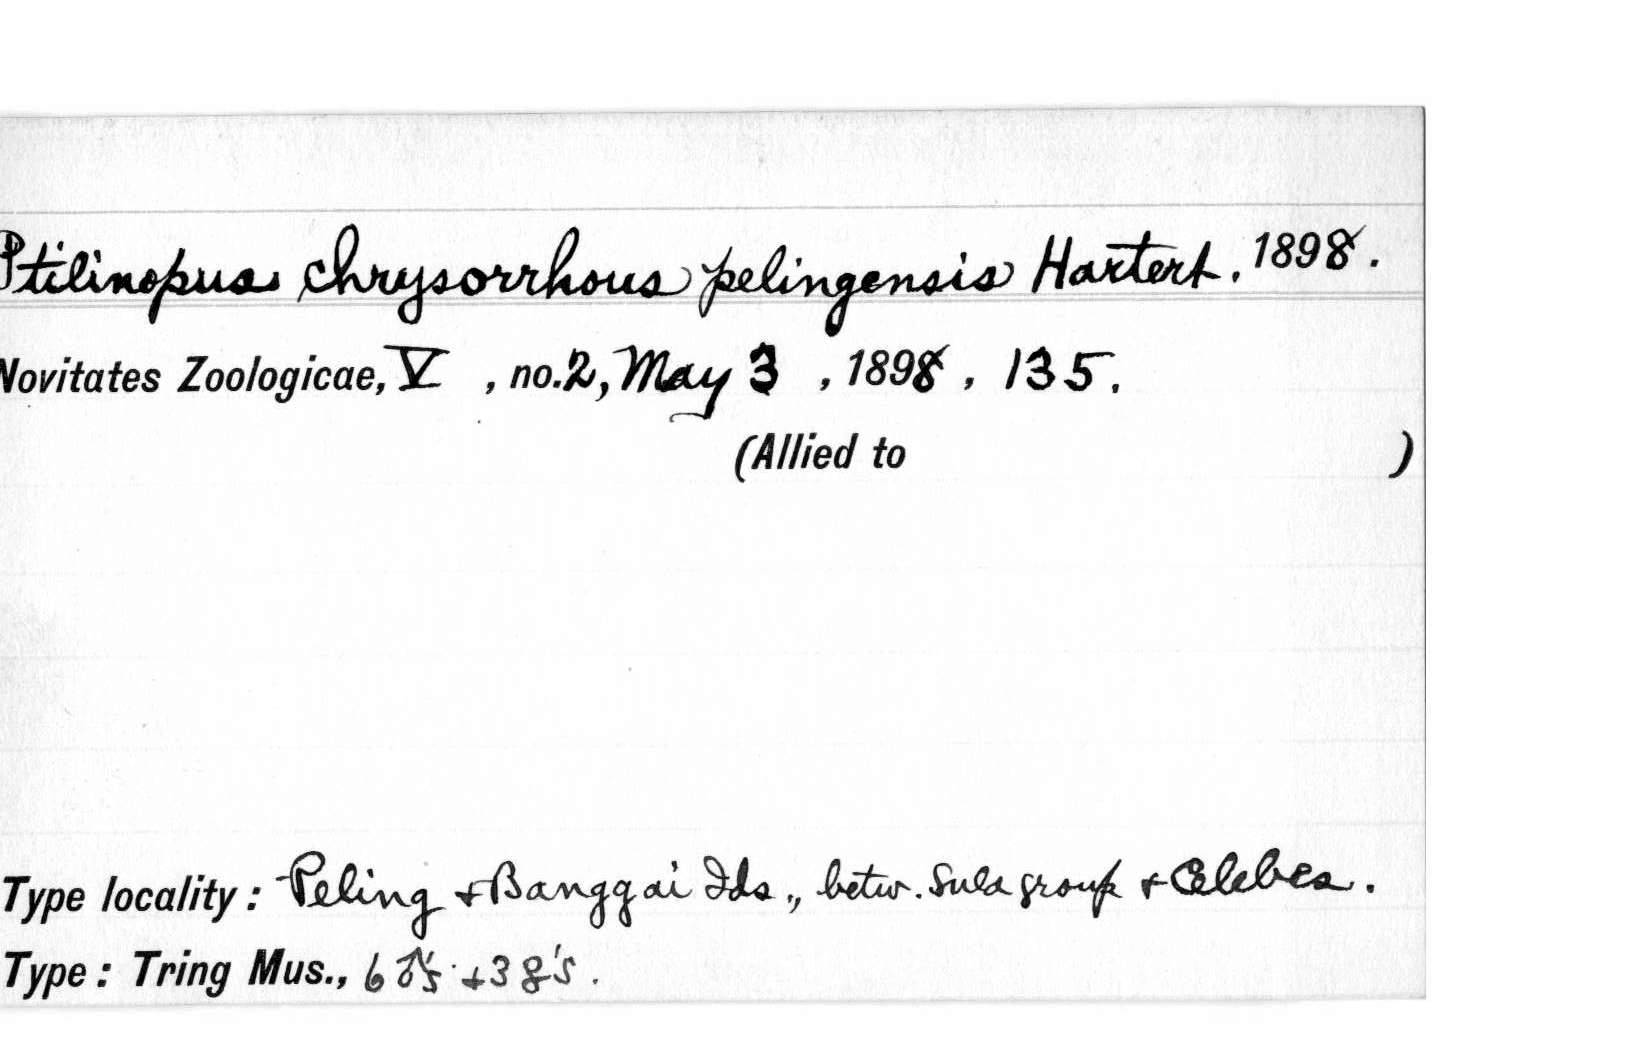 Ptilinopus chrysorrhous pelingensis Hartert, 1898.
Novitates Zoologicae, V , no. 2, May 3 , 1898 , 135.
(Allied to )
Type locality : Peling + Banggai Ids., betw. Sula group + Celebes.
Type : Tring Mus., 6 ♂'s + 3 ♀'s.